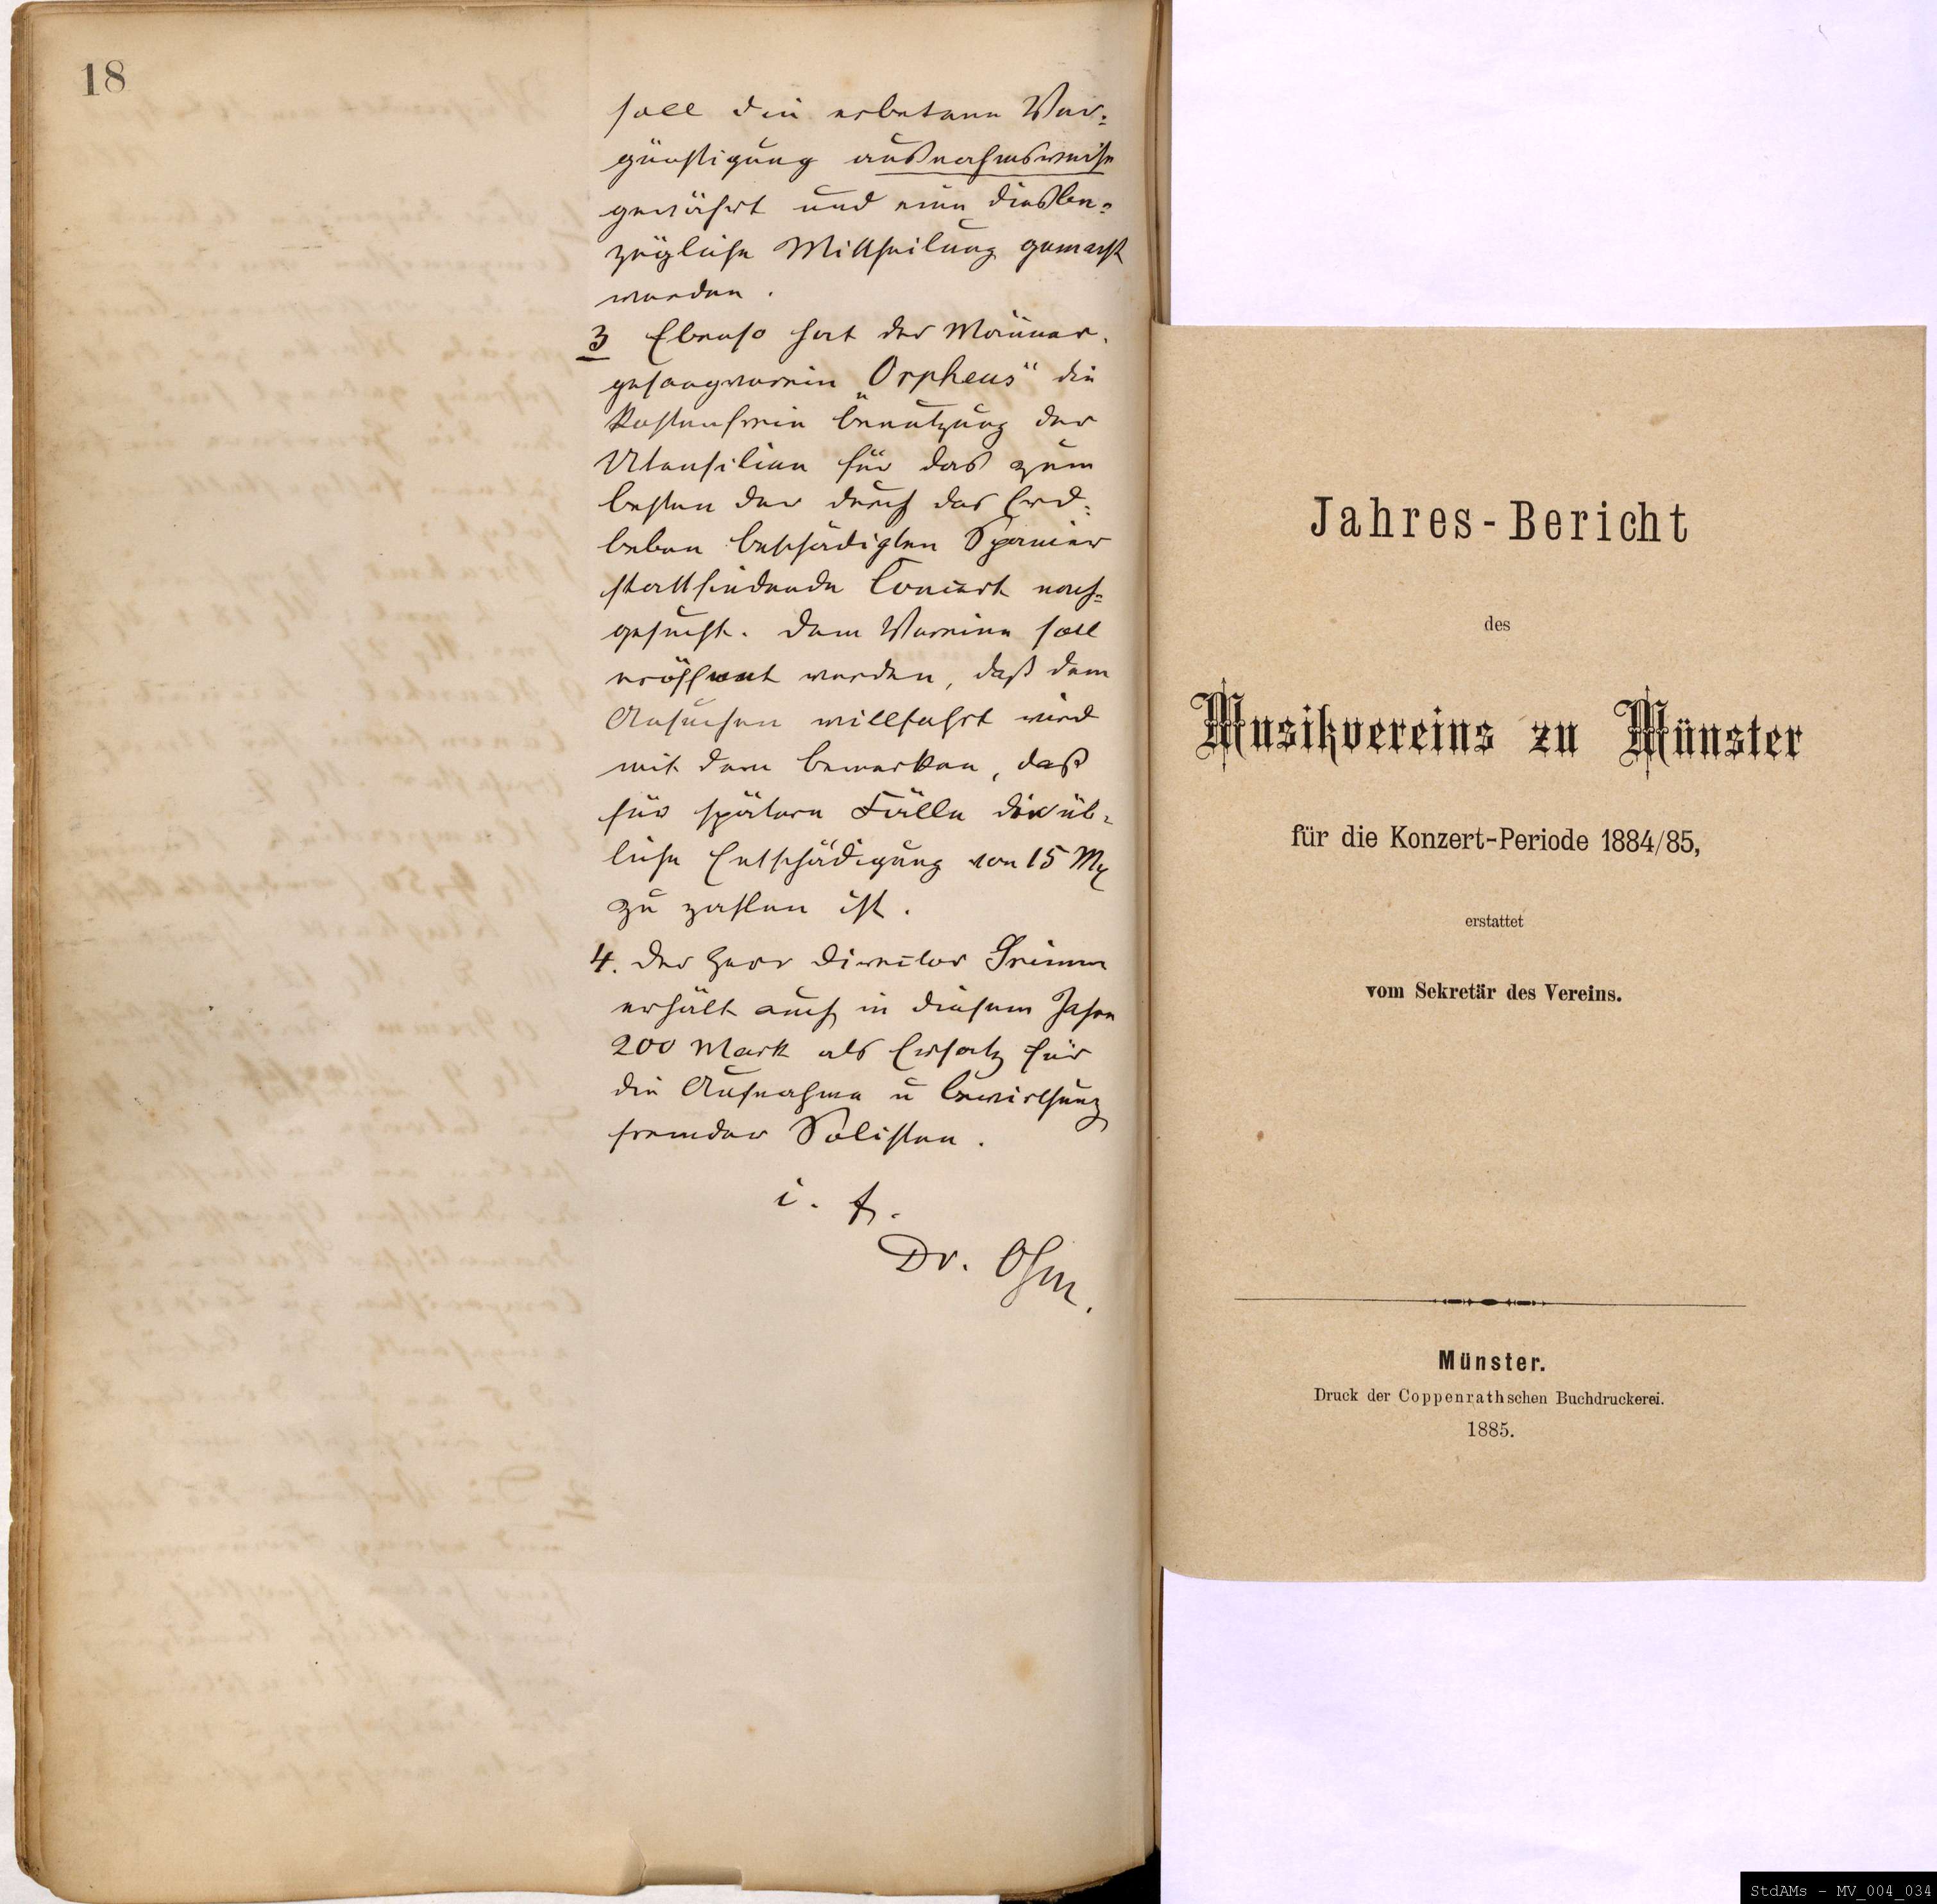 18
soll die erbetene Ver-
günstigung ausnahmsweise
gewährt und eine diesbe-
zügliche Mittheilung gemacht
werden.
3 Ebenso hat der Männer-
gesangverein „Orpheus“ die
kostenfreie Benutzung der
Utensilien für das zum
besten der durch das Erd-
beben beschädigten Spanier
stattfindende Concert nach-
gesucht. Dem Vereine soll
eröffnet werden, daß dem
Ansuchen willfahrt wird
mit dem Bemerken, daß
für spätere Fälle die üb-
liche Entschädigung von 15 Mk
zu zahlen ist.
4. Der Herr Director Grimm
erhält auch in diesem Jahre
200 Mark als Ersatz für
die Aufnahme u Bewirthung
fremder Solisten.
i. f.
Dr. Ohm.
Jahres-Bericht
des
Musikvereins zu Münster
für die Konzert-Periode 1884/85,
erstattet
vom Sekretär des Vereins.
Münster.
Druck der Coppenrathschen Buchdruckerei.
1885.
StdAMs - MV_004_034